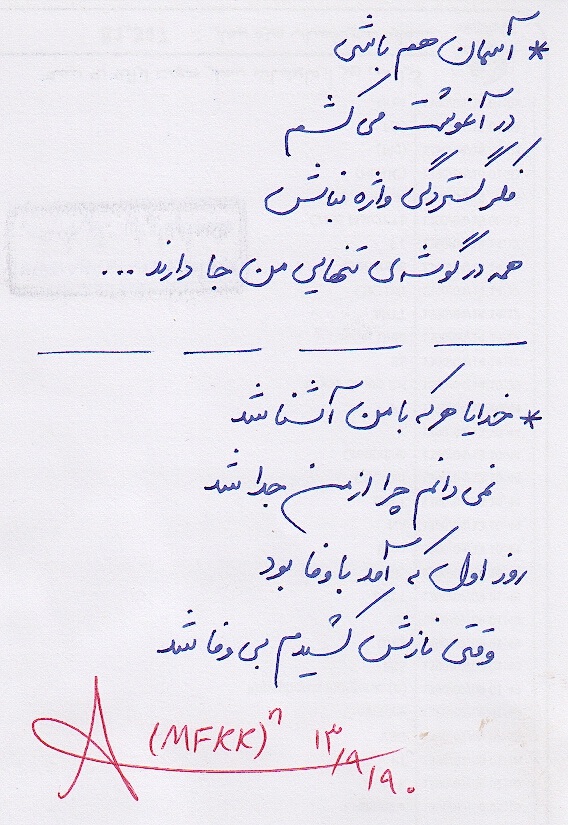 * آسمان هم باشی
در آغوشت می کشم
فکر گستردگی واژه نباش
همه در گوشه ی تنهایی من جا دارند ...
* خدایا هر که با من آشنا شد
نمی دانم چرا از من جدا شد
روز اول که آمد با وفا بود
وقتی نازش کشیدم بی وفا شد
(MFKK)ⁿ ۱۳/۹/۹۰